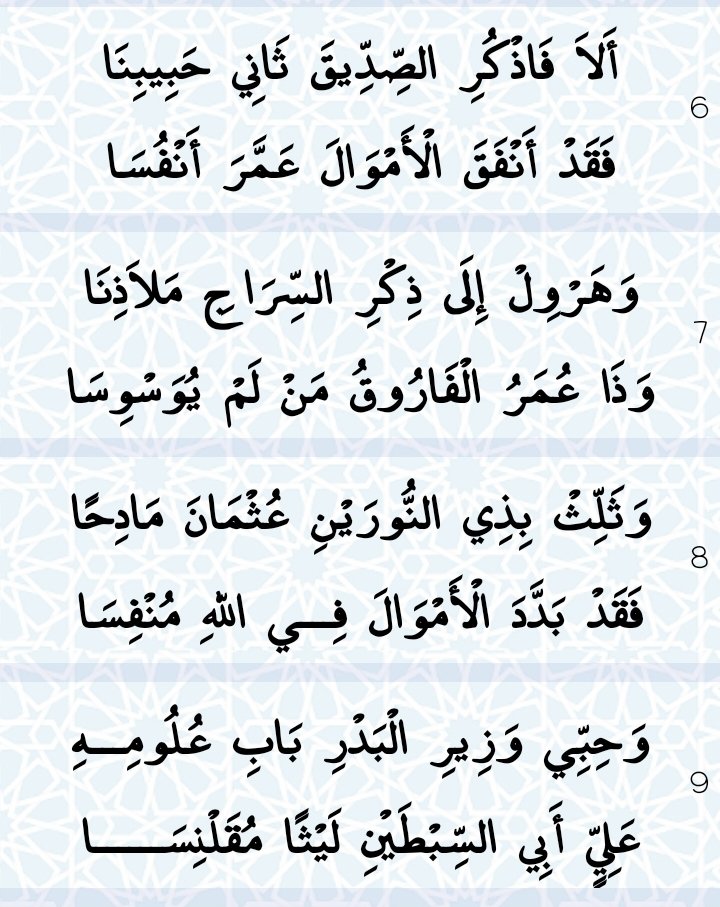 أَلاَ فَاذْكُرِ الصِّدِّيقَ ثَانِي حَبِيبِنَا
6
فَقَدْ أَنْفَقَ الْأَمْوَالَ عَمَّرَ أَنْفُسَا
وَهَرْوِلْ إِلَى ذِكْرِ السِّرَاجِ مَلاَذِنَا
7
وَذَا عُمَرُ الْفَارُوقُ مَنْ لَمْ يُوَسْوِسَا
وَثَلِّثْ بِذِي النُّورَيْنِ عُثْمَانَ مَادِحًا
8
فَقَدْ بَدَّدَ الْأَمْوَالَ فِـــي اللهِ مُنْفِسَا
وَحِبِّي وَزِيرِ الْبَدْرِ بَابِ عُلُومِـــهِ
9
عَلِيٍّ أَبِي السِّبْطَيْنِ لَيْثًا مُقَلْنِسَـــــا